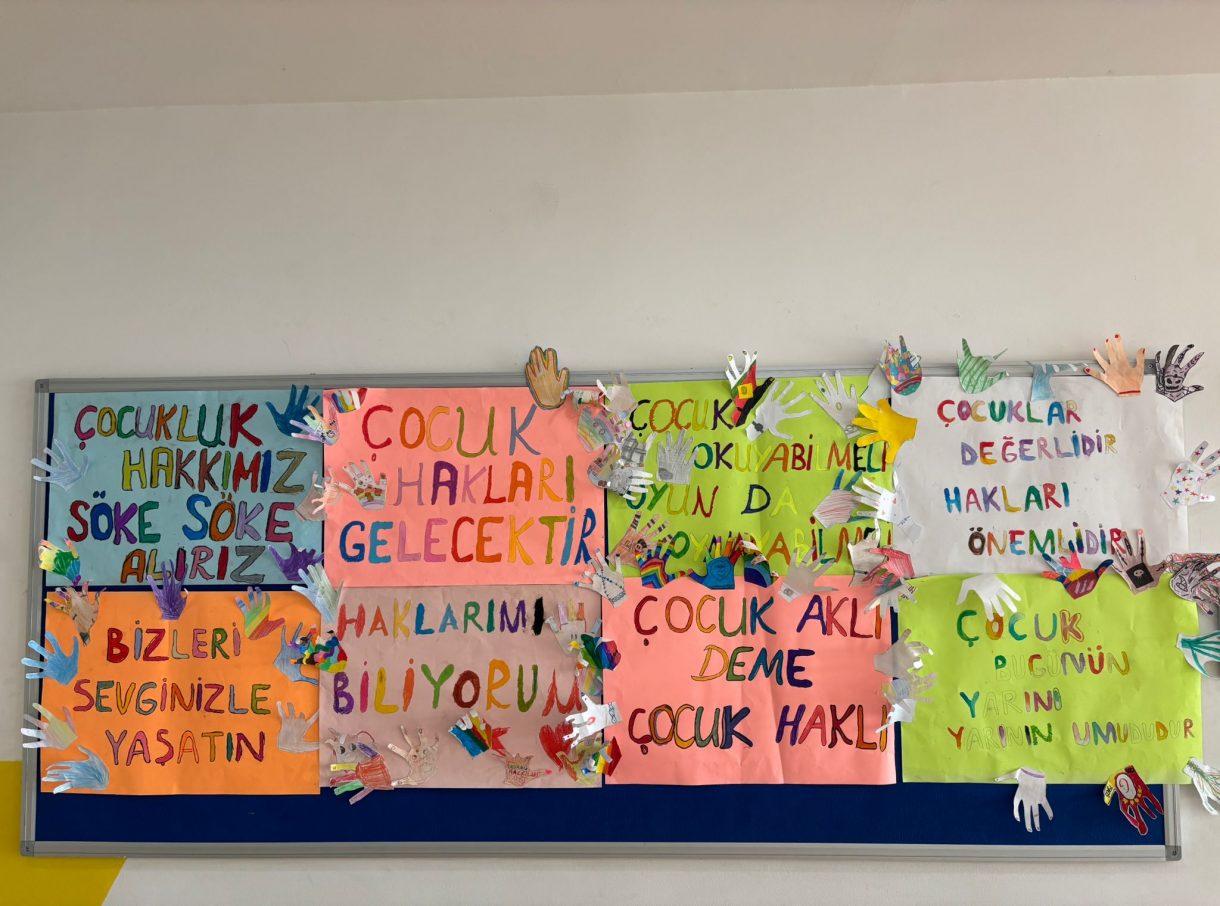 ÇOCUKLUK
HAKKIMIZ
SÖKE SÖKE
ALIRIZ
ÇOCUK
HAKLARI
GELECEKTİR
ÇOCUK
OKUYABİLMELİ
OYUN DA
OYNAYABİLMELİ
ÇOCUKLAR
DEĞERLİDİR
HAKLARI
ÖNEMLİDİR
BİZLERİ
SEVGİNİZLE
YAŞATIN
HAKLARIMI
BİLİYORUM
ÇOCUK AKLI
DEME
ÇOCUK HAKLI
ÇOCUK
BUGÜNÜN
YARINI
YARININ UMUDUDUR